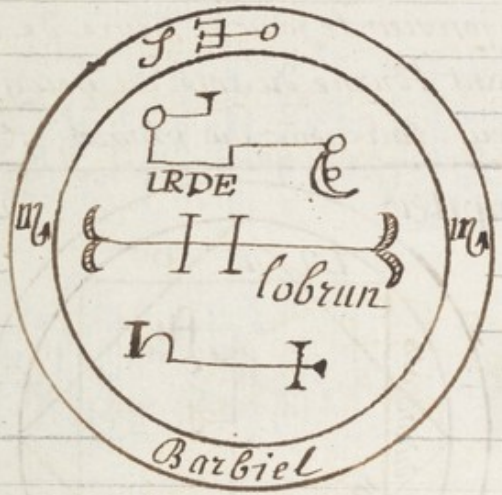 S
IRDE
♏ ♏
lobrun
Barbiel